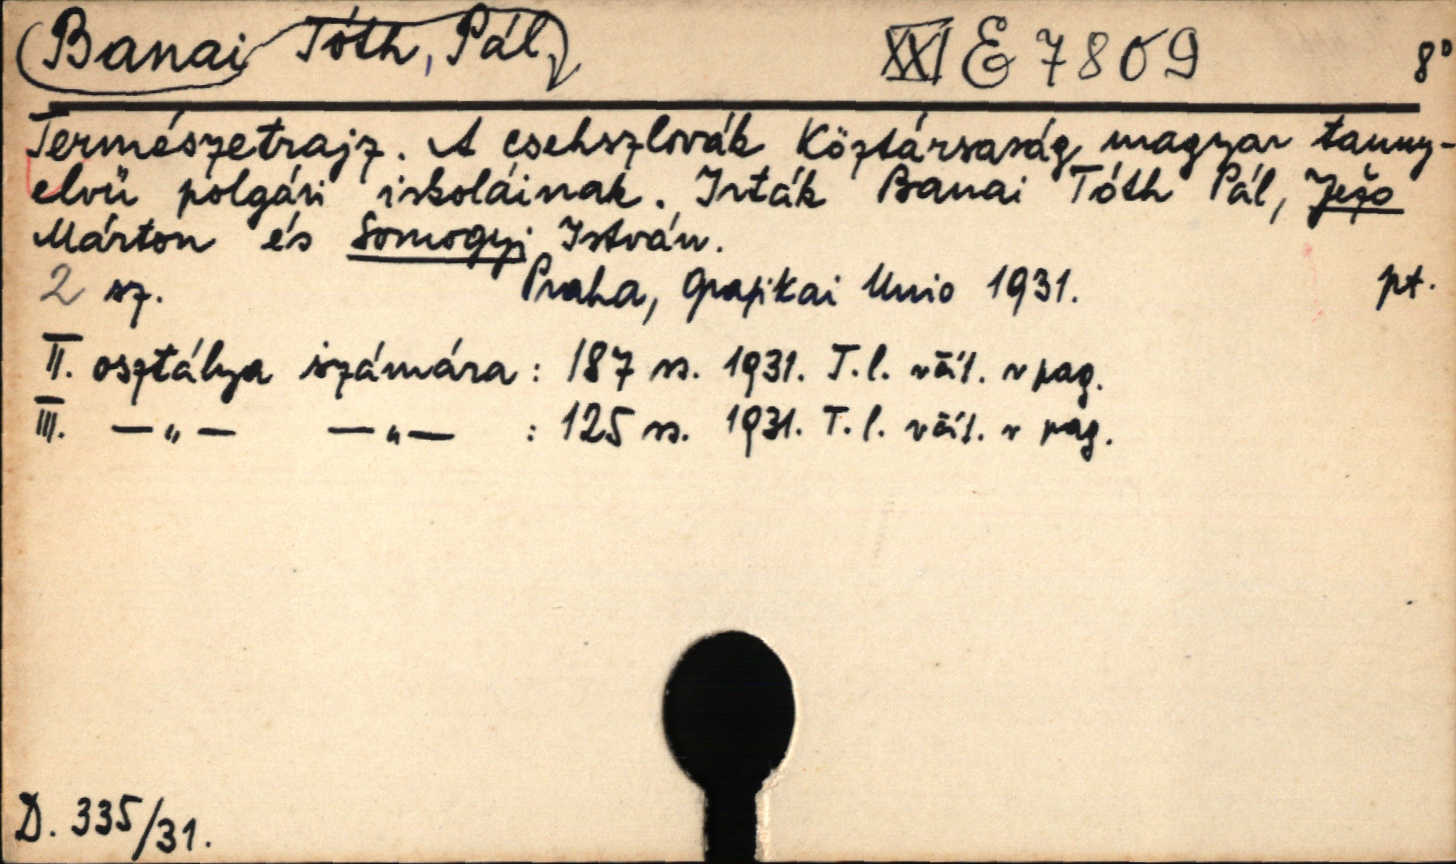 Banai Tóth, Pál, XXI E 7809 8°
Természetrajz. A csehszlovák Köztársaság magyar tanny-
elvü polgári iskoláinak. Irták Banai Tóth Pál, Ježo
Márton és Somogyi István.
2 sz. Praha, Grafikai Unio 1931. pt.
II. osztálya számára : 187 ss. 1931. T.l. včít. v pag.
III. —„— —„— : 125 ss. 1931. T.l. včít. v pag.
D. 335/31.